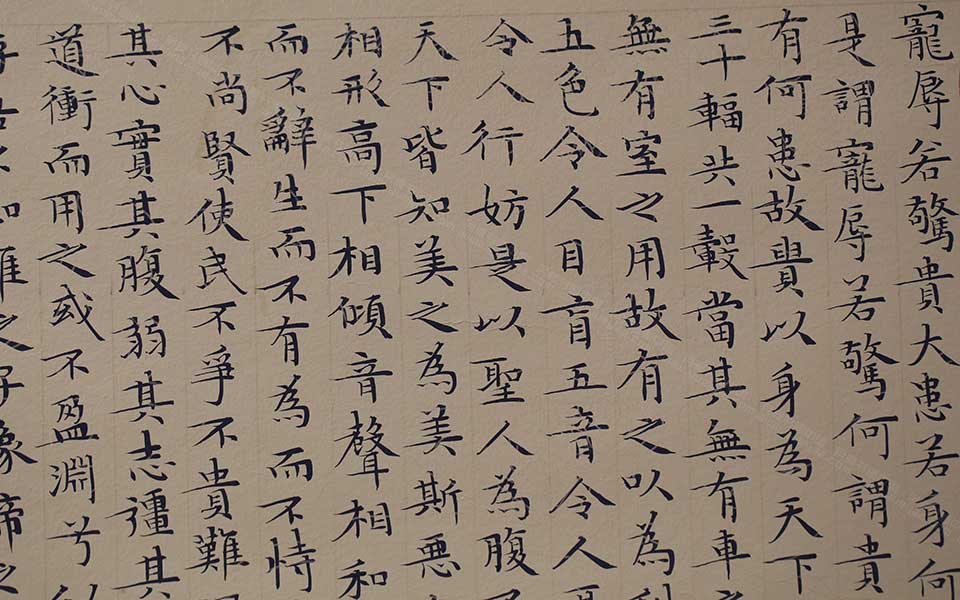 寵辱若驚貴大患若身何
是謂寵辱若驚何謂貴
有何患故貴以身為天下
三十輻共一轂當其無有車
無有室之用故有之以為利
五色令人目盲五音令人
令人行妨是以聖人為腹
天下皆知美之為美斯惡
相形高下相傾音聲相和
而不辭生而不有為而不恃
不尚賢使民不爭不貴難
其心實其腹弱其志彊其
道衝而用之或不盈淵兮似
吾不知誰之子象帝之